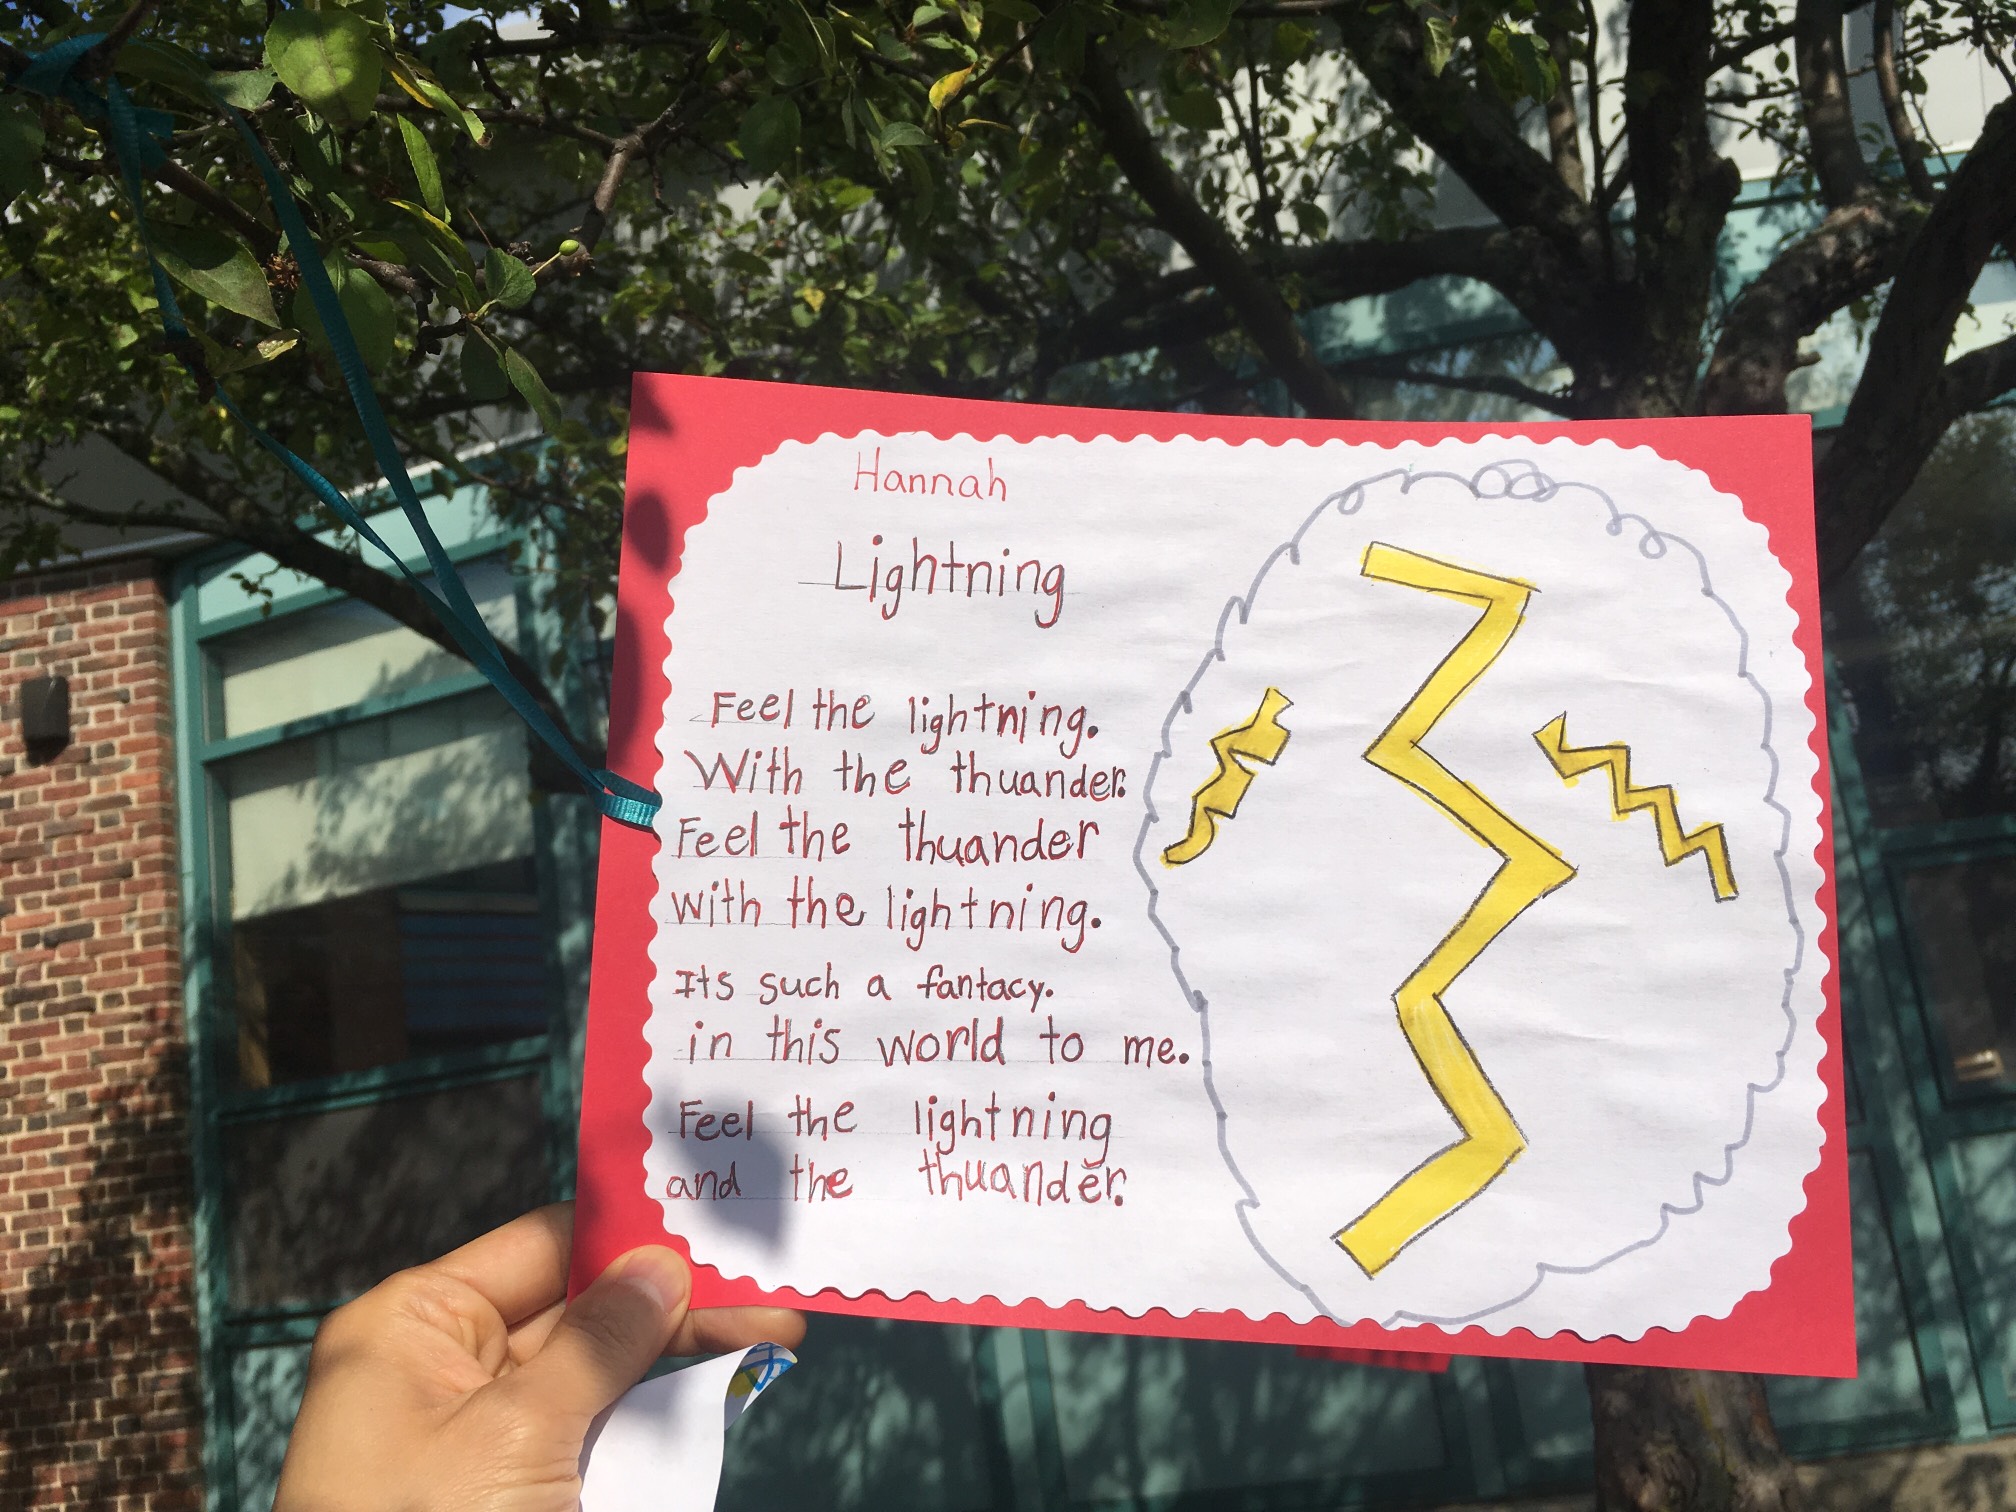 Hannah
Lightning
Feel the lightning.
With the thuander.
Feel the thuander
with the lightning.
Its such a fantacy.
in this world to me.
Feel the lightning
and the thuander.